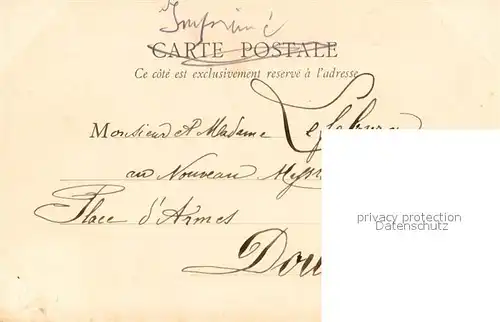 Imprimé
CARTE POSTALE
Ce côté est exclusivement réservé à l'adresse
Monsieur et Madame Lefebvre
au Nouveau
Place d'Armes
Dou
privacy protection
Datenschutz